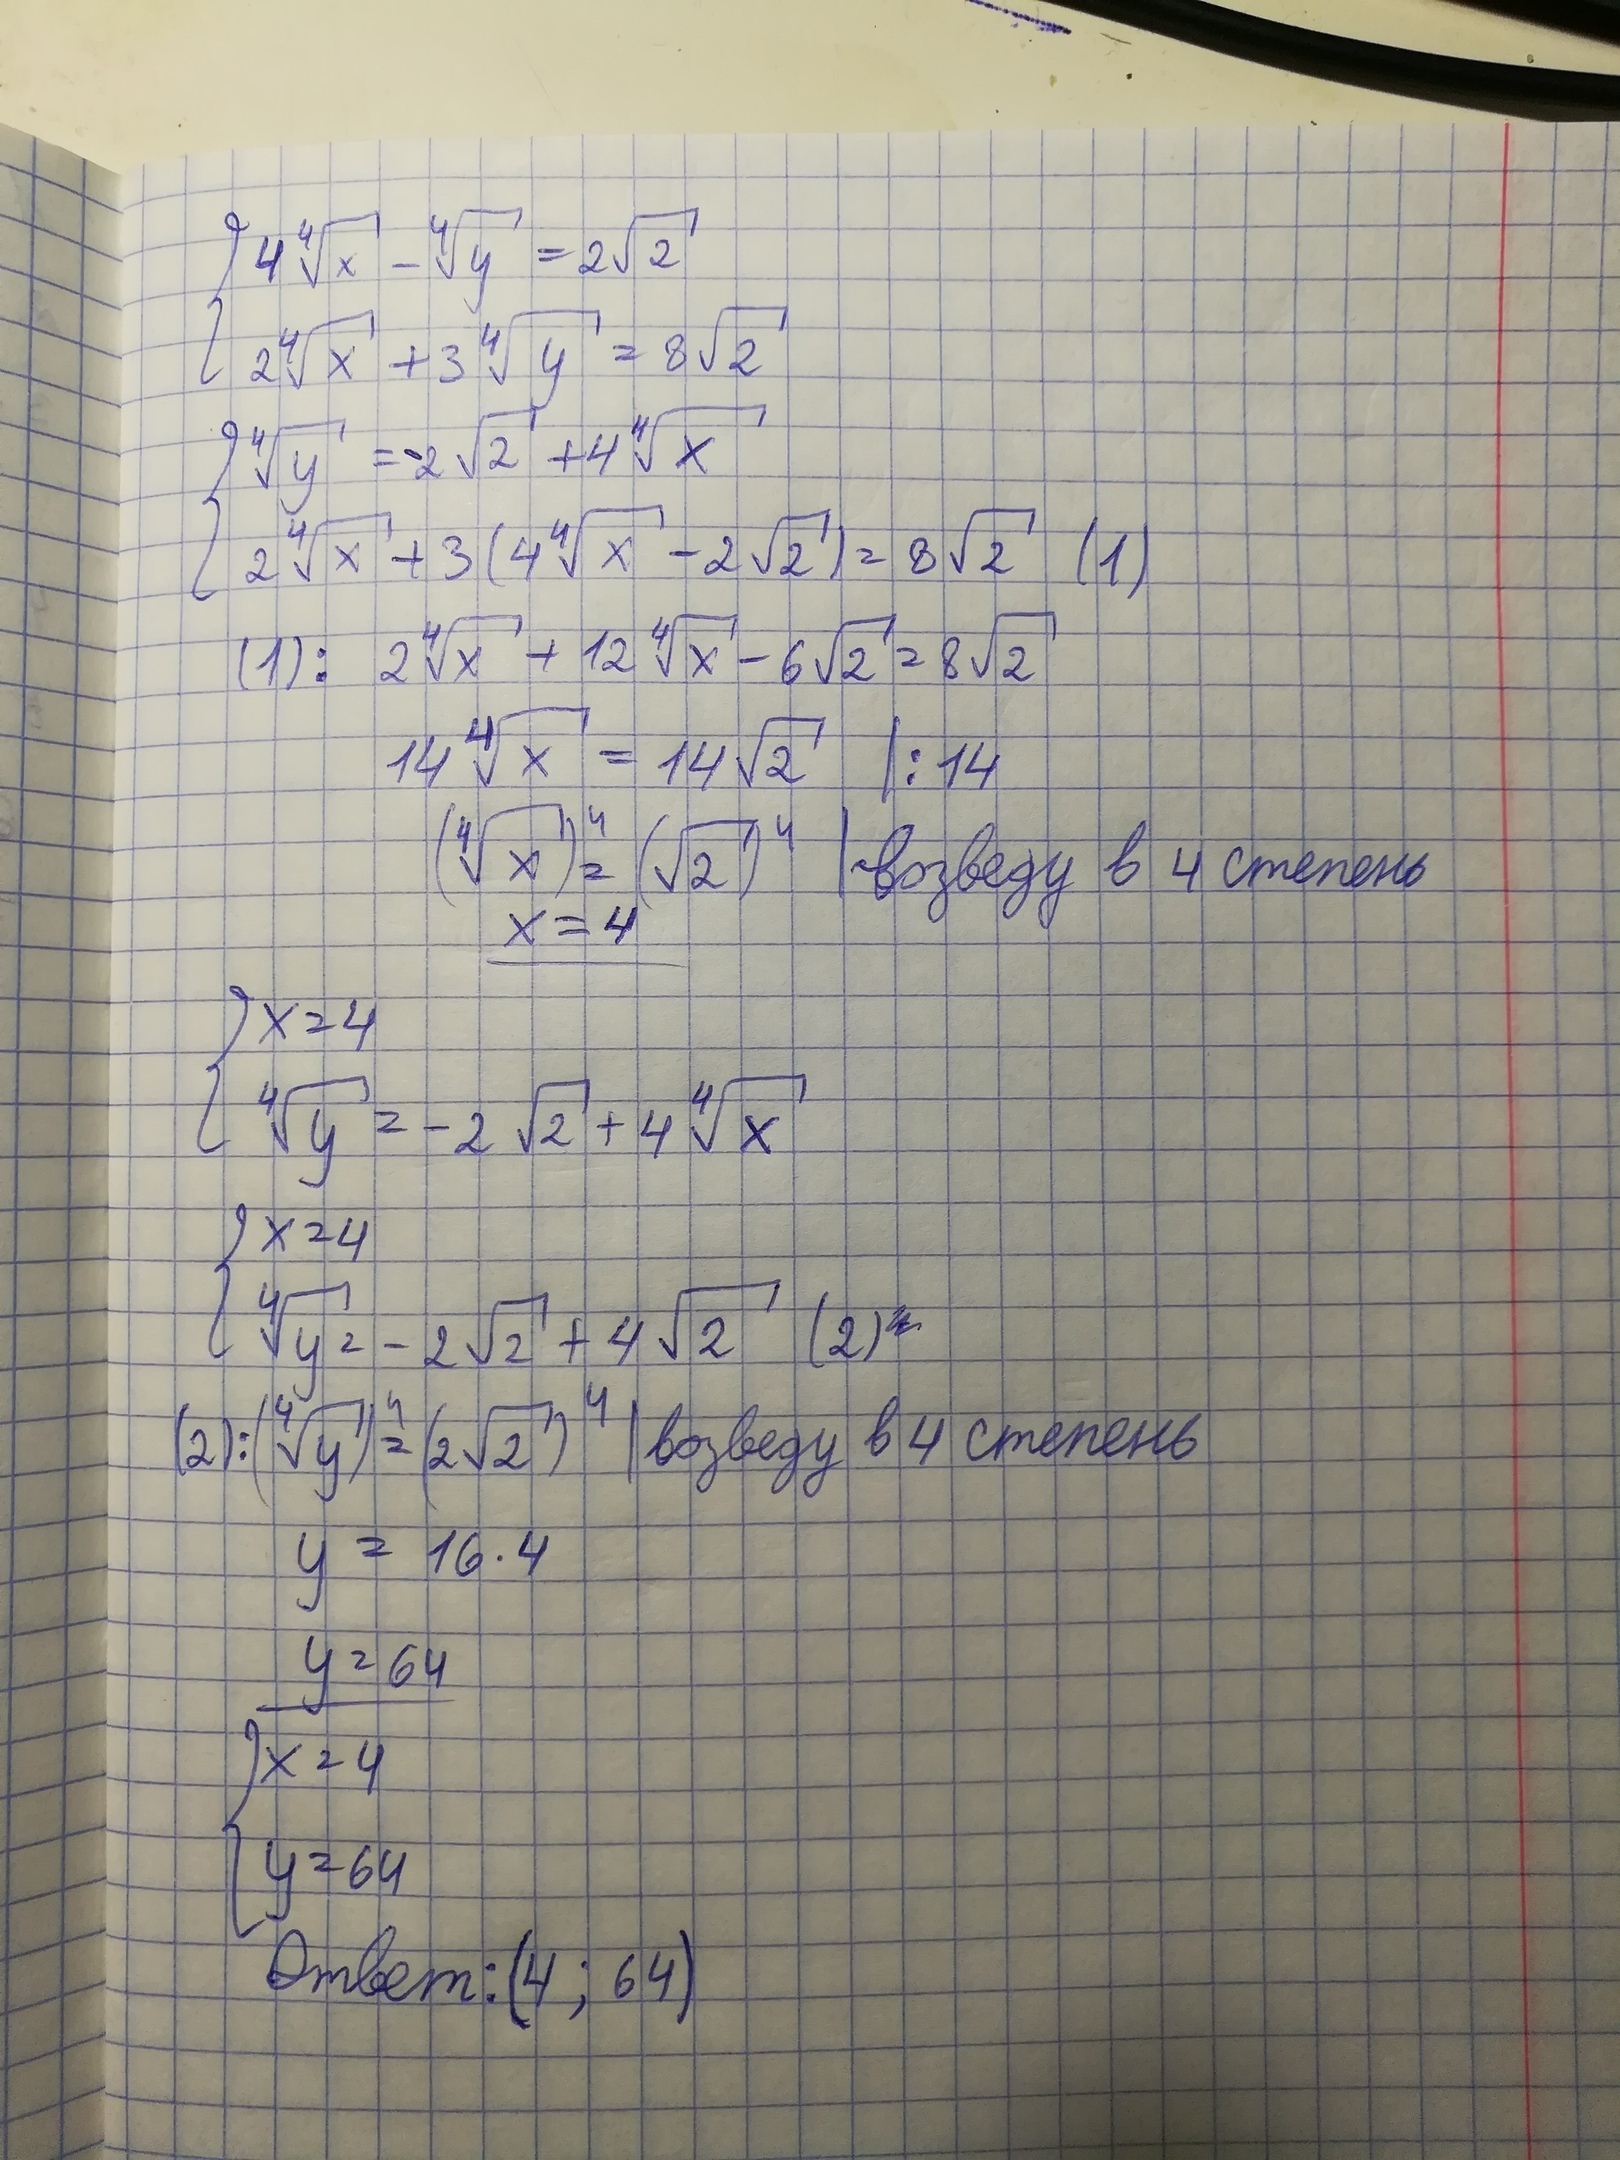 { 4∜x - ∜y = 2√2
2∜x + 3∜y = 8√2
{ ∜y = -2√2 + 4∜x
2∜x + 3(4∜x - 2√2) = 8√2 (1)
(1): 2∜x + 12∜x - 6√2 = 8√2
14∜x = 14√2 |:14
(∜x)⁴ = (√2)⁴ | возведу в 4 степень
x = 4
{ x = 4
∜y = -2√2 + 4∜x
{ x = 4
∜y = -2√2 + 4√2 (2)
(2): (∜y)⁴ = (2√2)⁴ | возведу в 4 степень
y = 16·4
y = 64
{ x = 4
y = 64
Ответ: (4; 64)